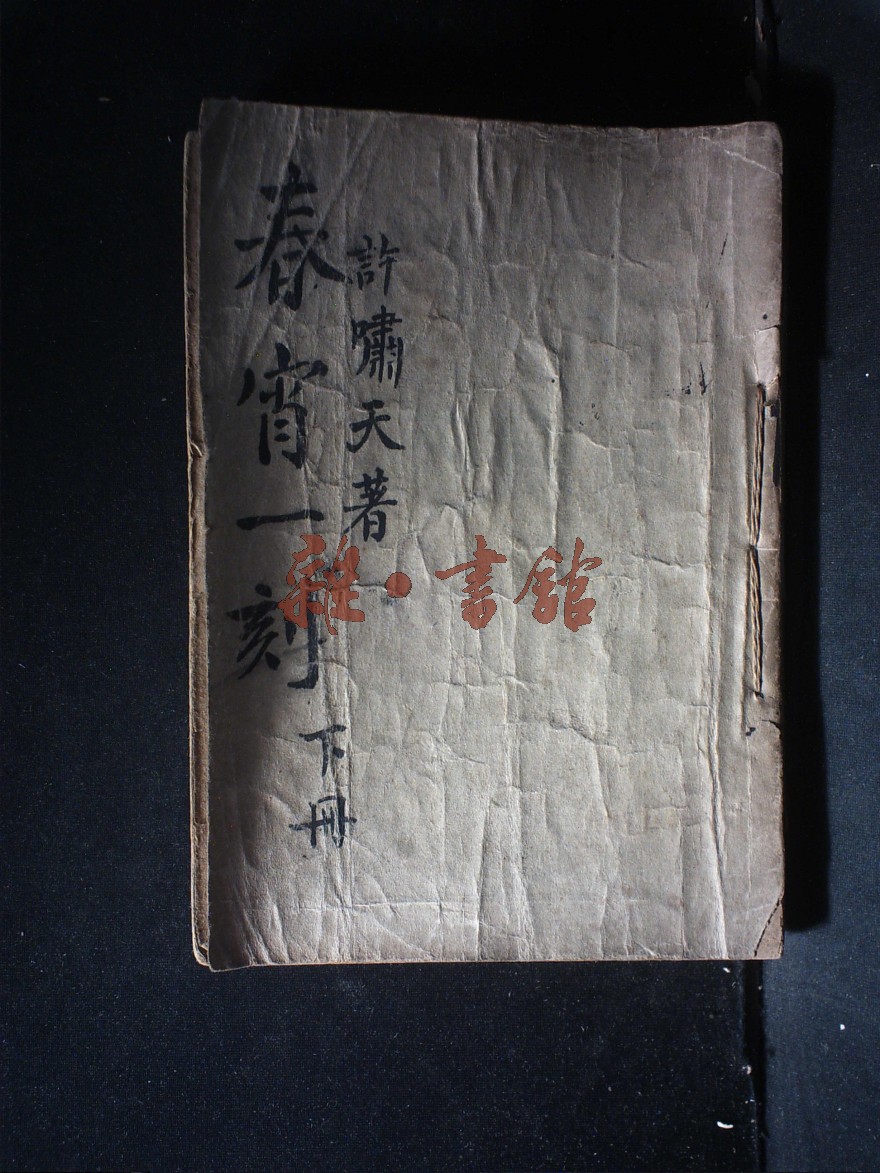 許嘯天著
春宵一刻
下冊
雜·書館